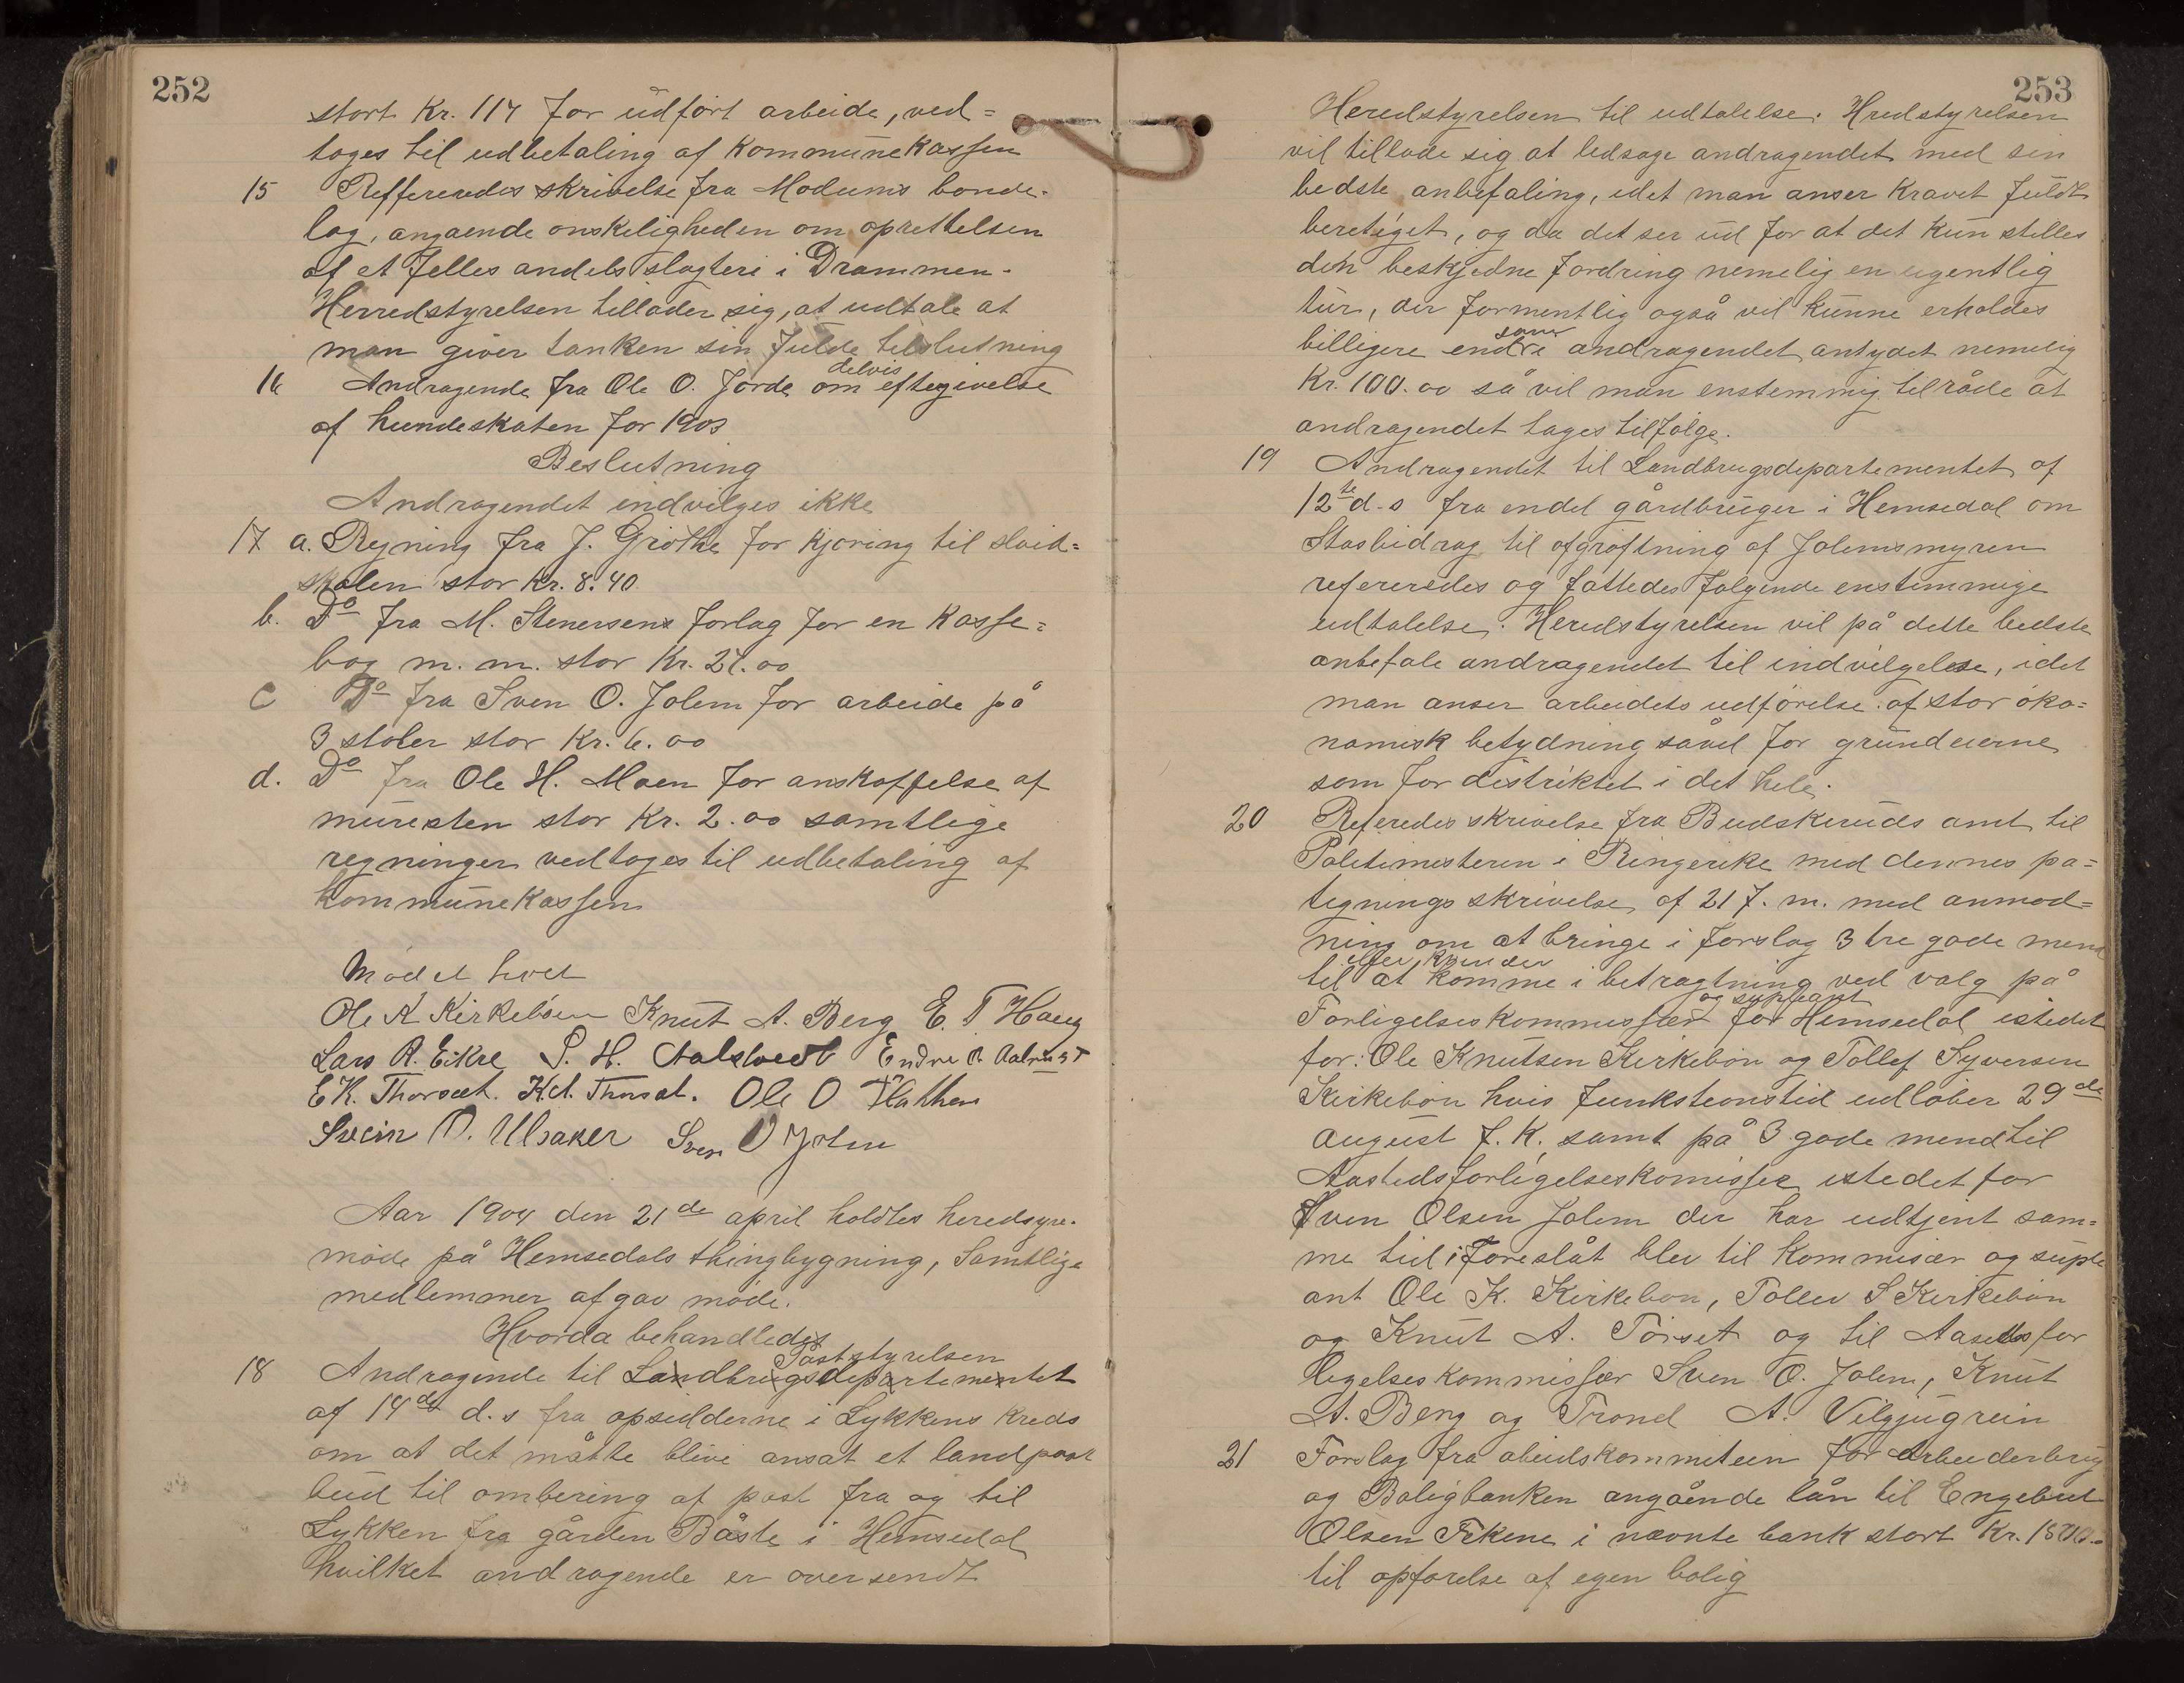 252
stort Kr. 114 for udført arbeide, ved=
tages til udbetaling af Kommunekassen
15 Reffereredes skrivelse fra Modums bonde-
lag, angaende onskeligheden om oprettelsen
af et felles andels slagteri i Drammen.
Herredstyrelsen tillader sig, at udtale at
man giver tanken sin fulde tilslutning
16 Andragende fra Ole O. Jorde om delvis eftegivelse
af hundeskaten for 1903
Beslutning
Andragendet indvilges ikke
17 a. Regning fra J. Grøthe for kjøring til sløid=
skolen stor Kr. 8.40
b. Do fra M. Stenersens forlag for en Kasse=
bog m. m. stor Kr. 24.00
c Do fra Sven O. Jolem for arbeide på
3 stoler stor Kr. 6.00
d. Do fra Ole H. Moen for anskaffelse af
muresten stor Kr. 2.00 samtlige
regninger vedtoges til udbetaling af
kommunekassen
Mødet hevet
Ole K Kirkebøen Knut A. Berg E. T Haug
Lars R. Eikre S. H. Endre O.
E K. Thorset. K.A. Thorset. Ole O Flathen
Svein O. Ulsaker Sven O Jolem
Aar 1904 den 21de april holdtes heredsyre-
møde på Hemsedals thingbygning, Samtlige
medlemmer afgav møde.
Hvorda behandledes
18 Andragende til Landbrugsdepartementet Poststyrelsen
af 14de d.s fra opsidderne i Lykkens Kreds
om at det måtte blive ansat et landpost
bud til ombering af post fra og til
Lykken fra gården Båste i Hemsedal
hvilket andragende er oversendt
253
Heredstyrelsen til udtalelse. Hredstyrelsen
vil tillade sig at ledsage andragendet med sin
bedste anbefaling, idet man anser Kravet fuldt
beretiget, og da det ser ud for at det kun stilles
den beskjedne fordring nemelig en ugentlig
tur, der formentlig også vil kunne erholdes
billigere end som i andragendet antydet nemelig
Kr. 100.00 så vil man enstemmig tilråde at
andragendet tages tilfølge.
19 Andragendet til Landbrugsdepartementet af
12te d.s fra endel gårdbruger i Hemsedal om
Stasbidrag til afgrøftning af Jolemsmyren
refereredes og fattedes følgende enstemmige
udtalelse. Heredstyrelsen vil på dette bedste
anbefale andragendet til indvilgelese, idet
man anser arbeidets udførelse af stor øko=
nomisk betydning såvel for grundeierne
som for distriktet i det hele.
20 Referedes skrivelse fra Budskeruds amt til
Politimesteren i Ringerike med dennes pa=
tegnings skrivelse af 21 f. m. med anmod=
ning om at bringe i forslag 3 tre gode mend
eller kvinder
til at komme i betragtning ved valg på
Forligelseskommissær og supleant for Hemsedal istedet
for: Ole Knutsen Kirkebøn og Tollef Syversen
Kirkebøn hvis funkstionstid udløber 29de
august f. K. samt på 3 gode mend til
Aastedsforligelseskomissær istedet for
Sven Olsen Jolem der har udtjent sam=
me tid; Foreslåt blev til kommisær og suple
ant Ole K. Kirkebøn, Tollev S Kirkebøn
og Knut A. Torset og til Aasteds for
ligelseskommissær Sven O. Jolem, Knut
A. Berg og Trond A.
21 Forslag fra abeidskommiteen for arbeiderbrug
og Boligbanken angående lån til Engebret
Olsen i nævnte bank stort Kr. 1500.-
til opførelse af egen bolig